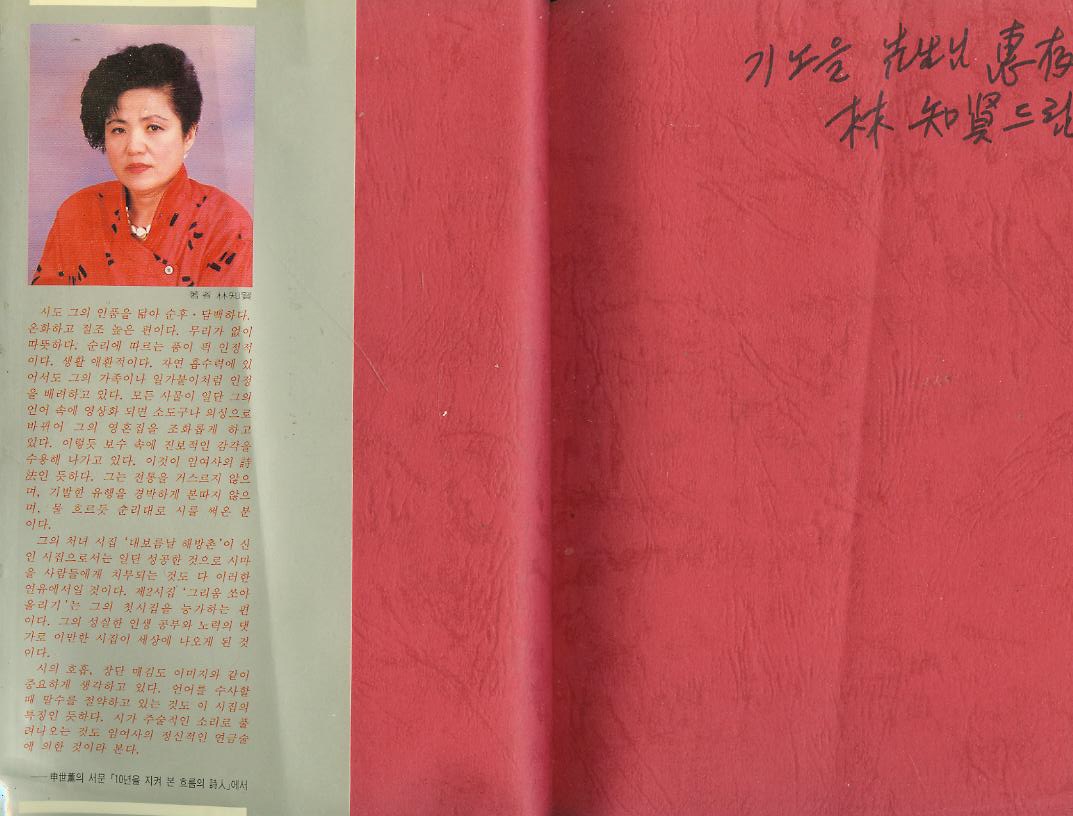 著者 林知賢
시도 그의 인품을 닮아 순후·담백하다.
온화하고 절조 높은 편이다. 무리가 없이
따뜻하다. 순리에 따르는 품이 퍽 인정적
이다. 생활 애환적이다. 자연 흡수력에 있
어서도 그의 가족이나 일가붙이처럼 인정
을 배려하고 있다. 모든 사물이 일단 그의
언어 속에 영상화 되면 소도구나 의상으로
바뀌어 그의 영혼집을 조화롭게 하고
있다. 이렇듯 보수 속에 진보적인 감각을
수용해 나가고 있다. 이것이 임여사의 詩
法인 듯하다. 그는 전통을 거스르지 않으
며, 기발한 유행을 경박하게 본따지 않으
며, 물 흐르듯 순리대로 시를 써온 분
이다.
그의 처녀 시집 '대보름날 해방촌'이 신
인 시집으로서는 일단 성공한 것으로 시마
을 사람들에게 치부되는 것도 다 이러한
연유에서일 것이다. 제2시집 '그리움 쏘아
올리기'는 그의 첫시집을 능가하는 편
이다. 그의 성실한 인생 공부와 노력의 댓
가로 이만한 시집이 세상에 나오게 된 것
이다.
시의 호흡, 장단 매김도 이미지와 같이
중요하게 생각하고 있다. 언어를 수사할
때 말수를 절약하고 있는 것도 이 시집의
특징인 듯하다. 시가 주술적인 소리로 풀
려나오는 것도 임여사의 정신적인 연금술
에 의한 것이라 본다.
──申世薰의 서문 「10년을 지켜 본 흐름의 詩人」에서
기노을 先生님 惠存
林 知賢 드림